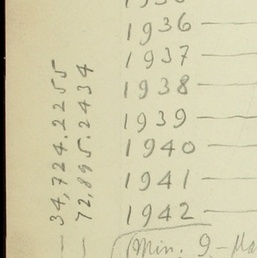 1936
1937
1938
1939
1940
1941
1942
Min. 9-Ma
34,724.2255
72,895.2434